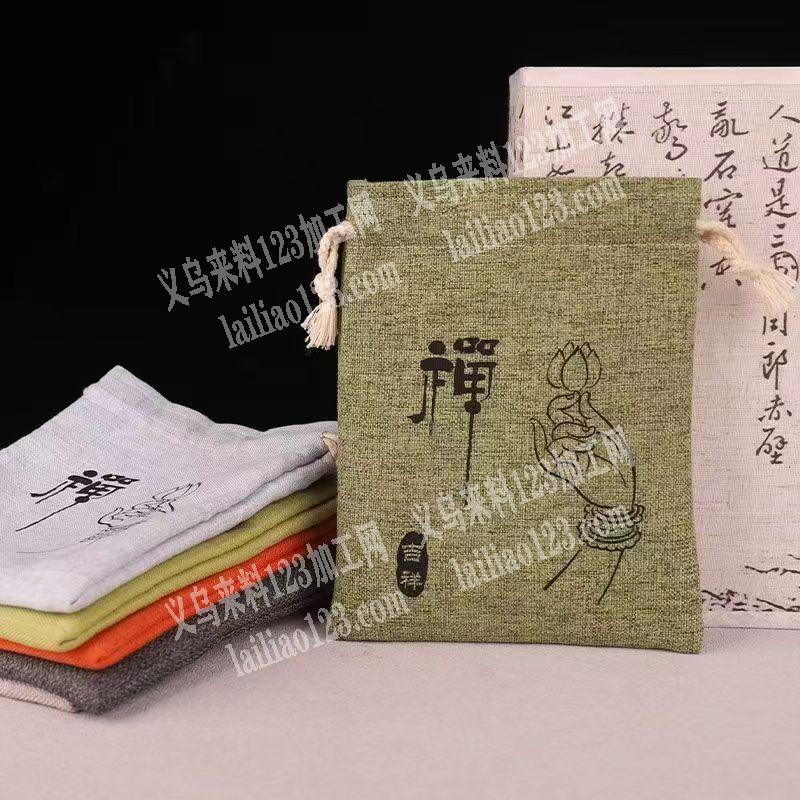 义乌来料123加工网
lailiao123.com
义乌来料123加工网
lailiao123.com
义乌来料123加工网
lailiao123.com
义乌来料123加工网
lailiao123.com
禅
吉祥
禅
人道是三国周郎赤壁
乱石穿
江山如